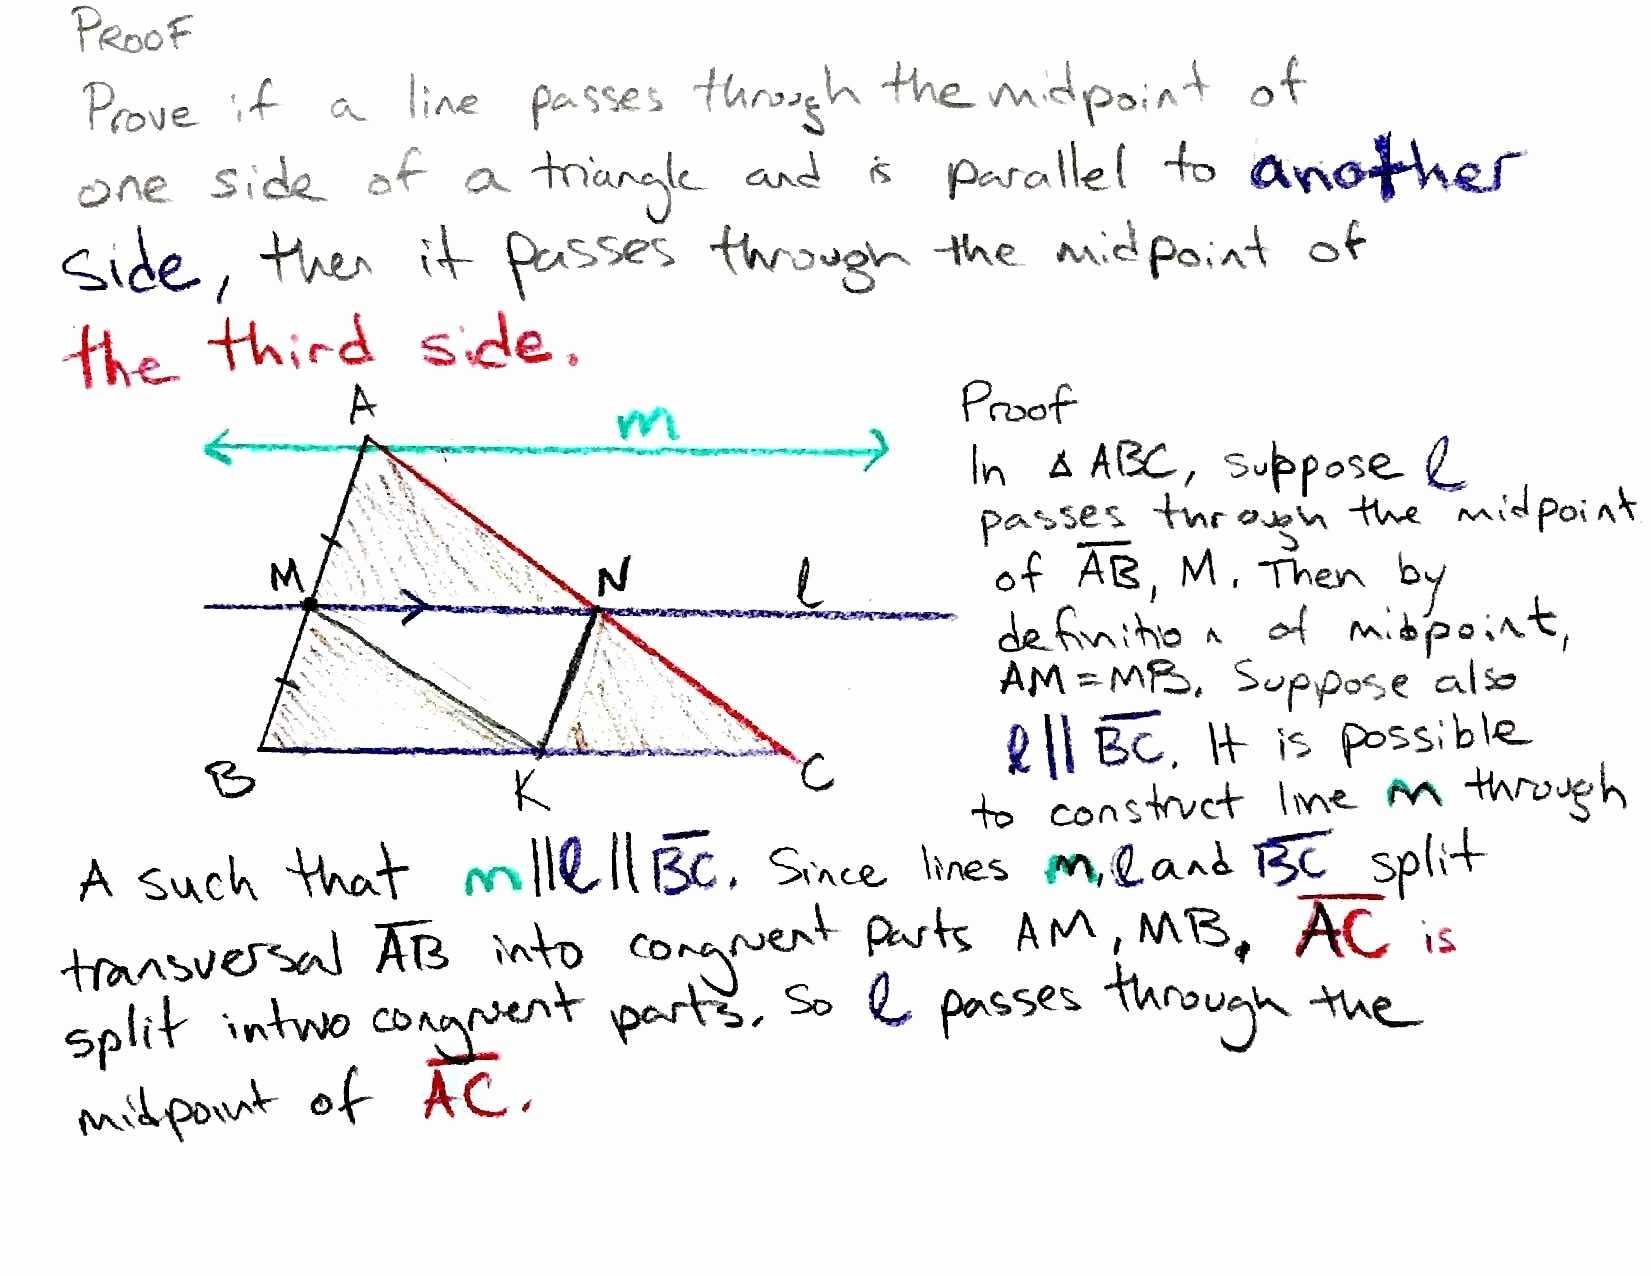 PROOF
Prove if a line passes through the midpoint of
one side of a triangle and is parallel to another
side, then it passes through the midpoint of
the third side.
A
m
M
N
l
B
K
C
Proof
In △ ABC, suppose l
passes through the midpoint
of A̅B̅, M. Then by
definition of midpoint,
AM = MB. Suppose also
l || B̅C̅. It is possible
to construct line m through
A such that m || l || B̅C̅. Since lines m, l and B̅C̅ split
transversal A̅B̅ into congruent parts AM, MB, A̅C̅ is
split intwo congruent parts. So l passes through the
midpoint of A̅C̅.